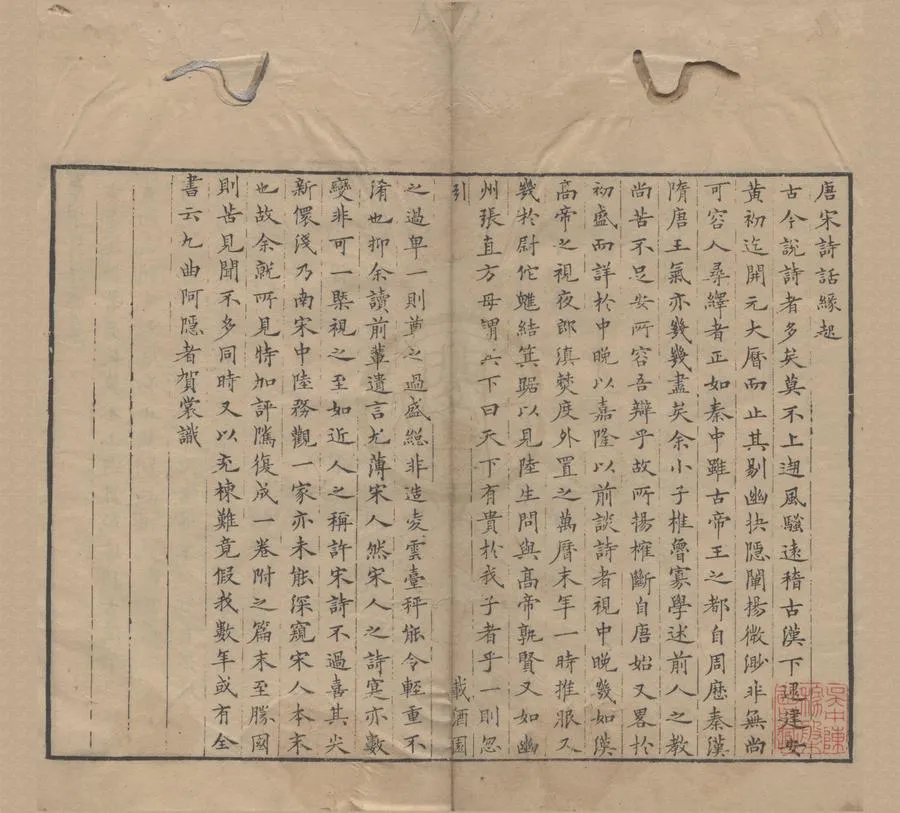 唐宋詩話緣起
古今說詩者多矣莫不上遡風騷遠稽古漢下逮建安
黃初迄開元大曆而止其剔幽抉隱闡揚微渺非無尚
可容人尋繹者正如秦中雖古帝王之都自周歷秦漢
隋唐王氣亦幾幾盡矣余小子椎魯寡學述前人之教
尚苦不足安所容吾辯乎故所揚榷斷自唐始又畧於
初盛而詳於中晚以嘉隆以前談詩者視中晚幾如漢
高帝之視夜郎滇僰度外置之萬曆末年一時推服又
幾於尉佗魋結箕踞以見陸生問與高帝孰賢又如幽
州張直方母謂其下曰天下有貴於我子者乎一則忽
引
載酒園
之過卑一則尊之過盛總非造凌雲臺秤能令輕重不
淆也抑余讀前輩遺言尤薄宋人然宋人之詩寔亦數
變非可一槩視之至如近人之稱許宋詩不過喜其尖
新儇淺乃南宋中陸務觀一家亦未能深窺宋人本末
也故余就所見特加評騭復成一卷附之篇末至勝國
則苦見聞不多同時又以充棟難竟假我數年或有全
書云九曲阿隱者賀裳識